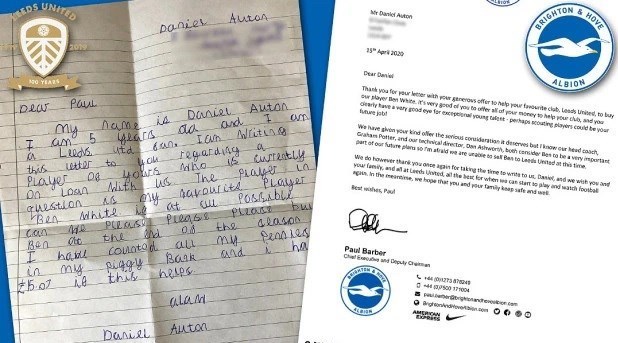 LEEDS UNITED
2019
100 YEARS
Daniel Auton
Dear Paul
My name is Daniel Auton
I am 5 years old and I am
a Leeds utd ban. I am Writing
this letter to you regarding a
Player of yours Who is currently
On loan With us The Player in
question is my favourite Player
Ben White is at all Possible
can We Please Please Please buy
Ben at the end of the season
I have counted all my Pennies
in my Piggy Bank and i hav
£15.07 is this helps
Daniel Auton
BRIGHTON & HOVE
ALBION
Mr Daniel Auton
15th April 2020
Dear Daniel
Thank you for your letter with your generous offer to help your favourite club, Leeds United, to buy
our player Ben White, it's very good of you to offer all of your money to help your club, and you
clearly have a very good eye for exceptional young talent - perhaps scouting players could be your
future job!
We have given your kind offer the serious consideration it deserves but I know our head coach,
Graham Potter, and our technical director, Dan Ashworth, both consider Ben to be a very important
part of our future plans so I'm afraid we are unable to sell Ben to Leeds United at this time.
We do however thank you once again for taking the time to write to us, Daniel, and we wish you and
your family, and all at Leeds United, all the best for when we can start to play and watch football
again. In the meantime, we hope that you and your family keep safe and well.
Best wishes, Paul
Paul Barber
Chief Executive and Deputy Chairman
BRIGHTON & HOVE
ALBION
+44 (0)1273 878249
+44 (0)7500 171004
paul.barber@brightonandhovealbion.com
BrightonAndHoveAlbion.com
AMERICAN
EXPRESS